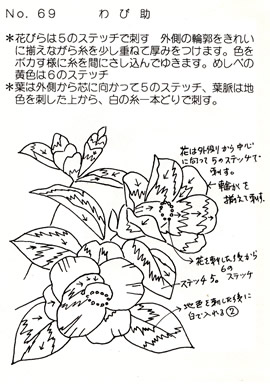 No. 69　わび助
*花びらは5のステッチで刺す　外側の輪郭をきれい
に揃えながら糸を少し重ねて厚みをつけます。色を
ボカす様に糸を間にさし込んでゆきます。めしべの
黄色は6のステッチ
*葉は外側から芯に向かって5のステッチ、葉脈は地
色を刺した上から、白の糸一本どりで刺す。
花は外側から中心
に向って5のステッチで
刺す。
輪かくを
揃えて刺す
花を刺した後から
6の
ステッチ
ステッチ5。
地色を刺した後に
白で入れる②